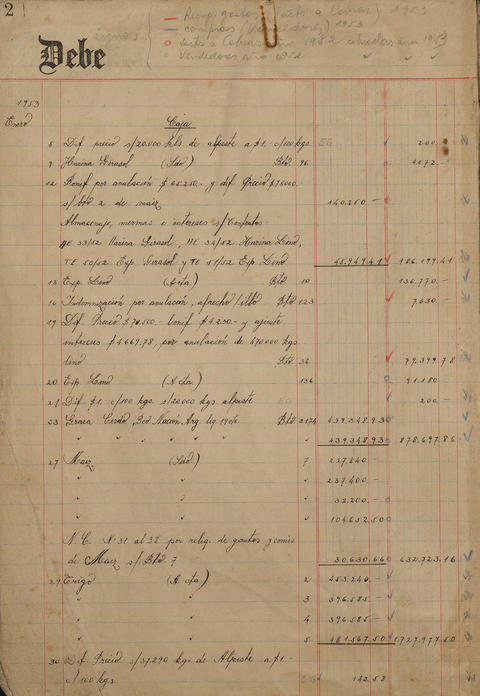 2
Debe
1953
1953
Vendedores año 1952
1953
Enero
Caja
5 Dif. precio s/20.000 kls. de alpiste a $1.- c/100 kgs EG 200.-
9 Harina Girasol (Sdo.) Btd. 96 4572.-
12 Bonif. por anulación $ 65.250.- y dif. Precio $75000
s/btd 2 de maiz 140.250.-
Almacenaje, mermas e intereses s/Contratos
TE 33/52 Harina Girasol, TE 34/52 Harina Lino,
TE 50/52 Exp. Girasol y TE 51/52 Exp. Lino 45.949.41 186.199.41
13 Exp. Lino (A cta.) Btd 10 136.770.-
16 Indemnización por anulación, afrecho Btd 123 7.630.-
19 Dif. Precio $ bonif $ 4.230.- y ajuste
intereses $ 4.669.78, por anulación de 670.000 kgs
lino Btd 36 77.399.78
20 Exp. Lino (A cta) 136 91.180.-
21 Dif. $1. c/100 kgs. s/20.000 kgs. alpiste EG 200.-
23 Grasa Cerdo, Bco Nación Arg. liq. Btd 2174 439.348.93
" " " " " 439.348.93 878.697.86
27 Maiz (Sdo.) 7 227.840.-
" " 237.400.-
" " 32.200.-
" " 104.652.50
N. C. Nº 31 al 32 por reliq. de gastos y comis
de Maiz s/Btd 7 30.630.66 632.723.16
29 Trigo (A cta) 2 453.240.-
" " 3 396.585.-
" " 4 396.585.-
" " 5 481.567.50 1.727.977.50
30 Dif. Precio s/37.290 kgs. de Alpiste a $1.-
c/100 kgs. EG 142.58